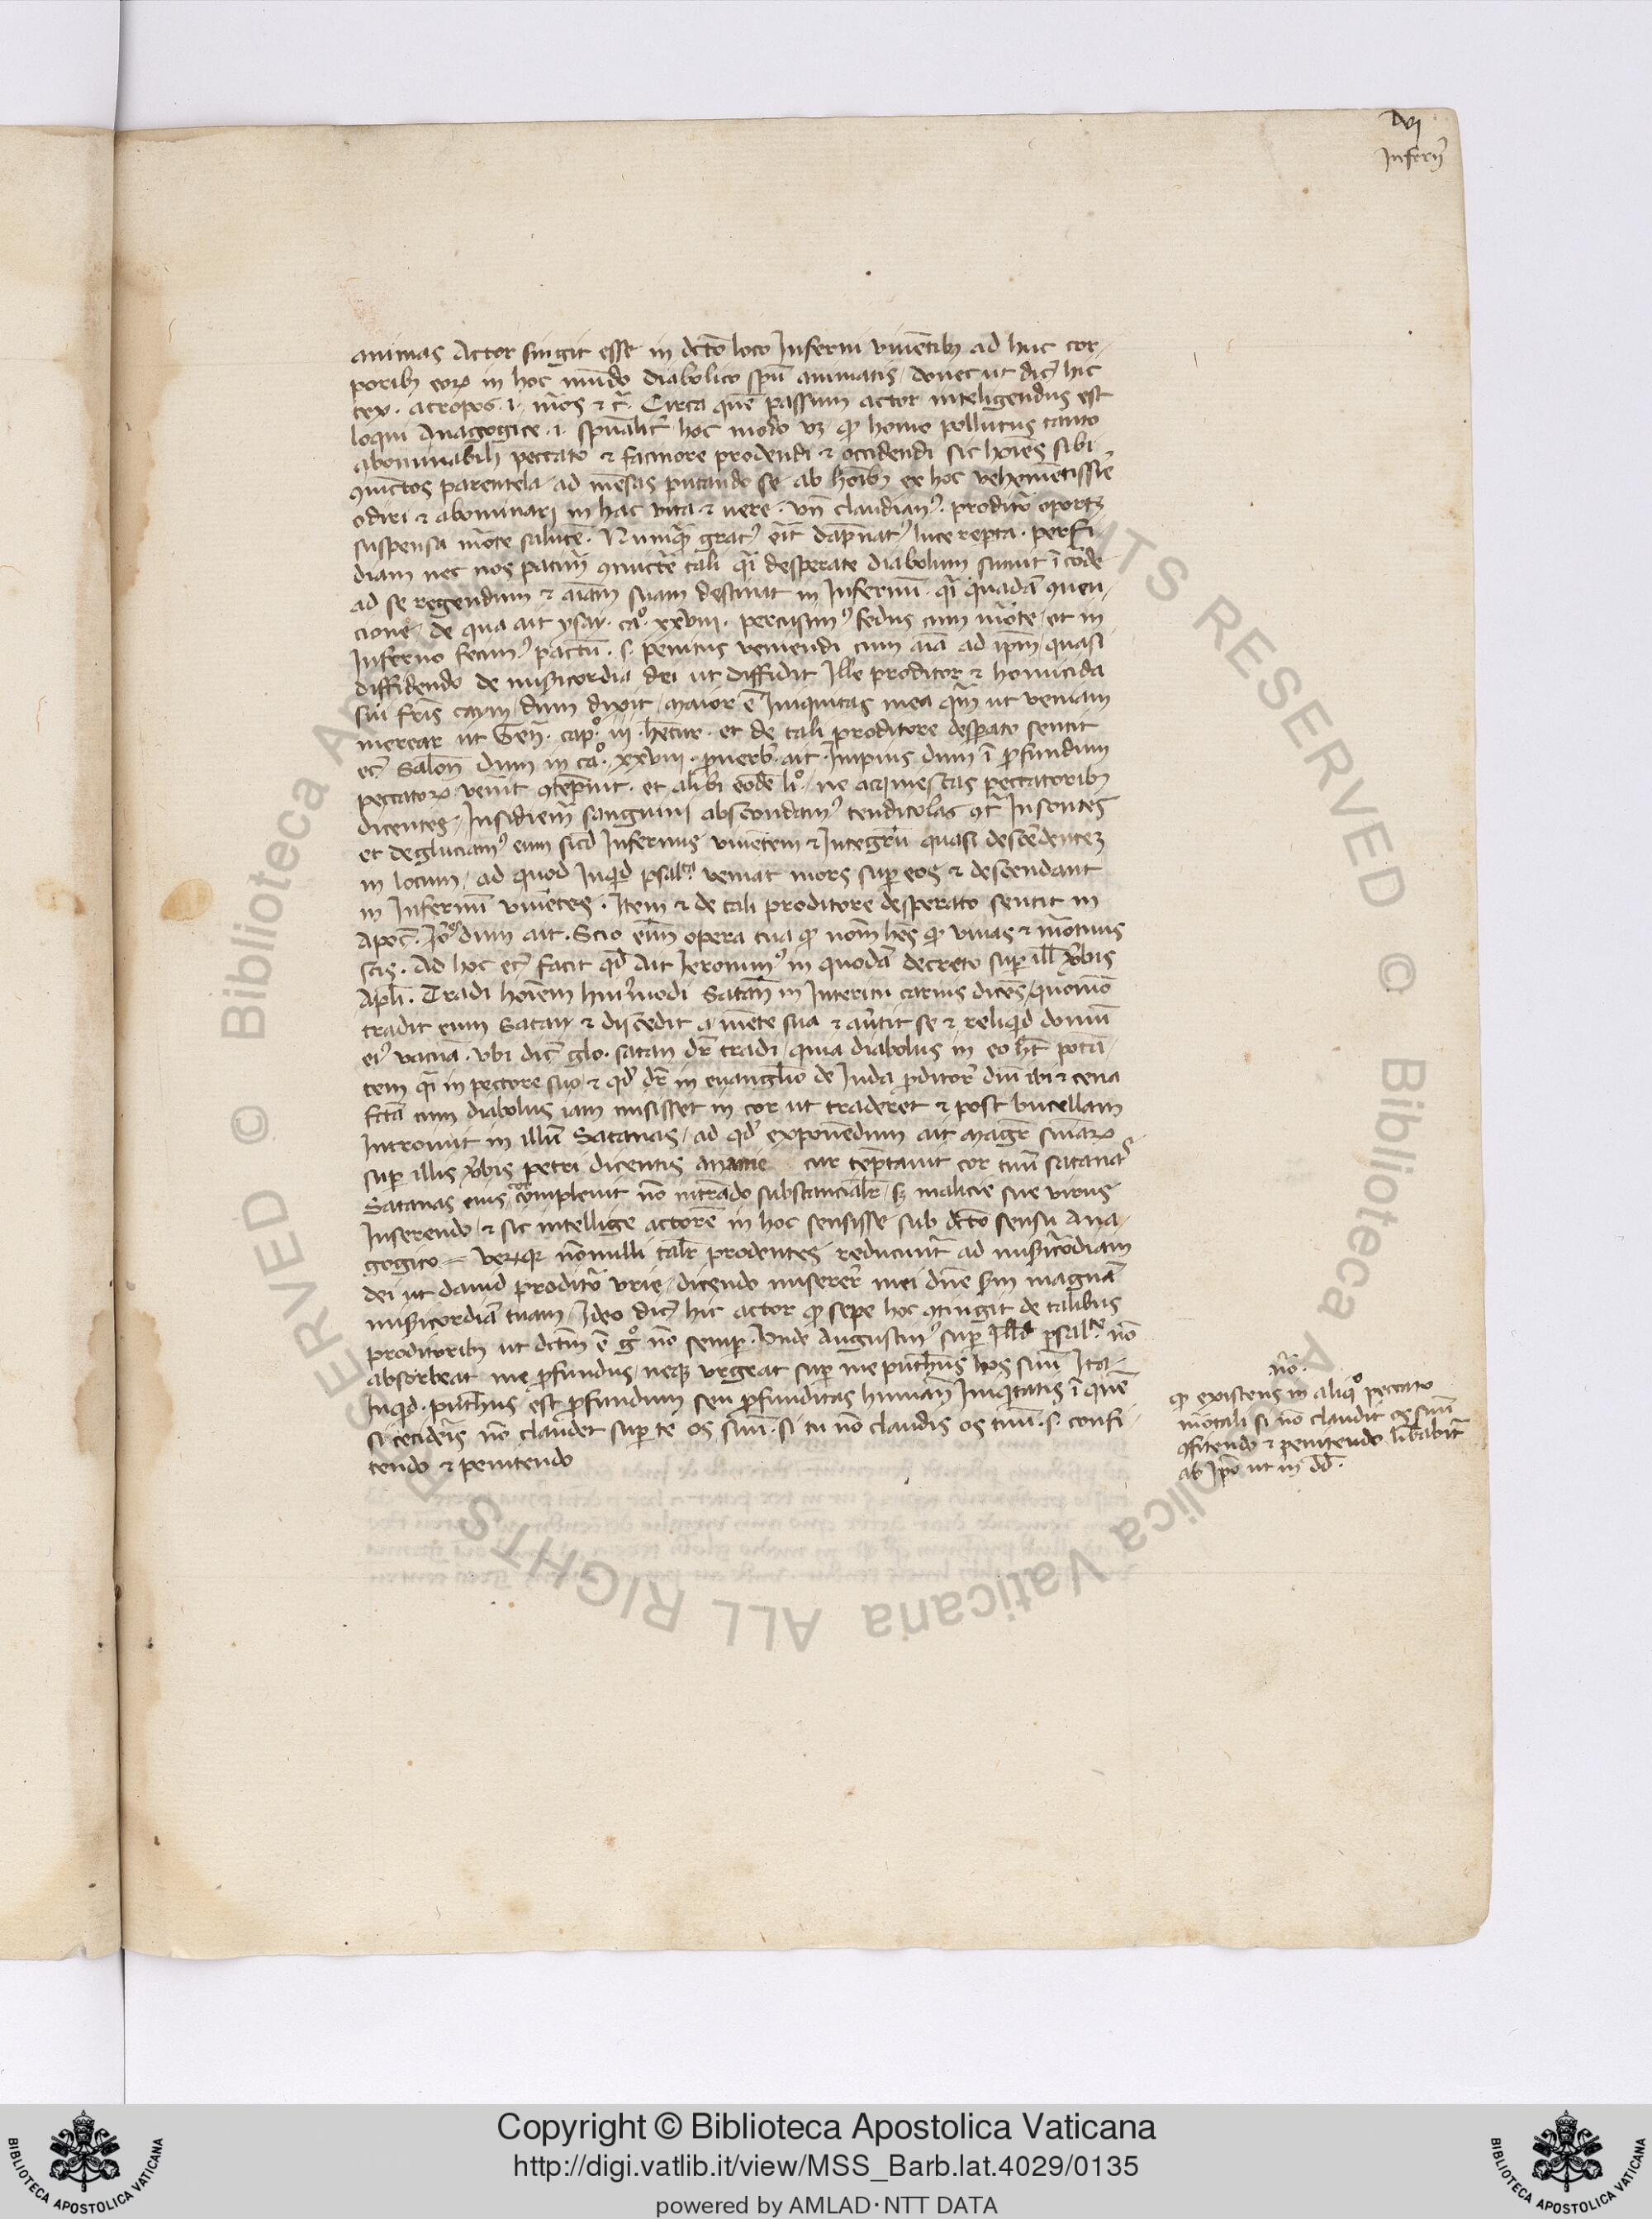 Inferni
animas Actor fingit esse in dcto loco Inferni viventib ad huc cor-
porib eorum in hoc mundo diabolico spu animatis, donec ut dic hic
tex. atropos .i. mors & c. Circa quem passum actor inteligendus est
loqui Anagogice .i. spualiter hoc modo vz. quod homo pollutus tanto
abominabili peccato & facinore prodendi & occidendi sic hoies sibi
coniunctos parentela ad mensas putando se ab hoibus ex hoc vehementissie
odiri & abominari in hac vita & vere. Vn claudianus. proditor oportz
suspensa morte salutem. Numquam gratus erit dapnatus luce reperta. perfi-
diam nec nos patimur coniuncte tali quia desperate diabolum sumit in corde
ad se regendum & aiam suam destinat in Infernum. quia quadam conven-
cione, de qua ait ysay. cao. xxviii. percusimus fedus cum morte, et in
Inferno fecimus pactum .s. penitus veniendi cum aia ad ipm, quasi
diffidendo de misericordia dei ut diffidit Ille proditor & homicida
sui fris caym, dum dixit, Maior e Iniquitas mea qm ut veniam
merear ut Gen. capo. iii. hetur. et de tali proditore desperato sentit
ec Salon dum in cao. xxviii. proverb. ait. Impius dum i profundum
peccatorum venit contepnit. et alibi eode lio. ne acquiescas peccatoribus
dicentes, Insidiem sanguini abscondamus tendiculas contra Insontes
et degluciamus eum sicud Infernus viventem & Integrum quasi descedentez
in locum, ad quod Inquid psalta veniat mors super eos & descendant
in Infernum viventes. Item & de tali proditore desperato sentit in
Apoc. Ioes dum ait. Scio eim opera tua quod nom hes quod vivas & mortuus
scis. Ad hoc ec facit qd Ait Ieronimus in quodam decreto super ill verbis
Apli. Tradi hoiem huiusmodi Satan in Interitu carnis dices, quomo
tradit eum Satan & discedit a mente sua & avertit se & reliquid domum
eius vacua. Vbi dic glo. satan dr tradi, quia diabolus in eo ht pota-
tem quia in pectore suo, & qd dr in evanglio de Iuda proditor dum ibi & cena
fcta cum diabolus iam misisset in cor ut traderet & post bucellam
Introivit in illum Satanas, ad qd exponendum ait Magr sniarum
super illis verbis petri dicentis ananie cur teptavit cor tuum satanas
Satanas eius cor complevit no intrando substancialr, sz malicie sue virus
Inserendo, & sic intellige actore in hoc sensisse sub dcto sensu Ana-
gogico. Verumque nonnulli talr prodentes reducunt ad misericordiam
dei ut david proditor Vrie, dicendo miserere mei dne scdm magna
misericordia tuam, Ideo dic hic actor quod sepe hoc contingit de talibus
proditorib ut dctm e go no semper. Vnde Augustinus super Illud psalte. no
absorbeat me profundus, neque urgeat super me putheus hos suum Ita-
Inquid. putheus est profundum seu profunditas human Iniquitatis i quem
si cecideris no claudet super te os suum. si tu no claudis os tuum .s. confi-
tendo & penitendo
no.
quod existens in aliquo peccato
mortali si no claudit os suum
confitendo & penitendo liberabitur
ab Ipso ut in dd.
Copyright © Biblioteca Apostolica Vaticana
http://digi.vatlib.it/view/MSS_Barb.lat.4029/0135
powered by AMLAD·NTT DATA
BIBLIOTECA APOSTOLICA VATICANA
BIBLIOTECA APOSTOLICA VATICANA
© Biblioteca Apostolica Vaticana ALL RIGHTS RESERVED